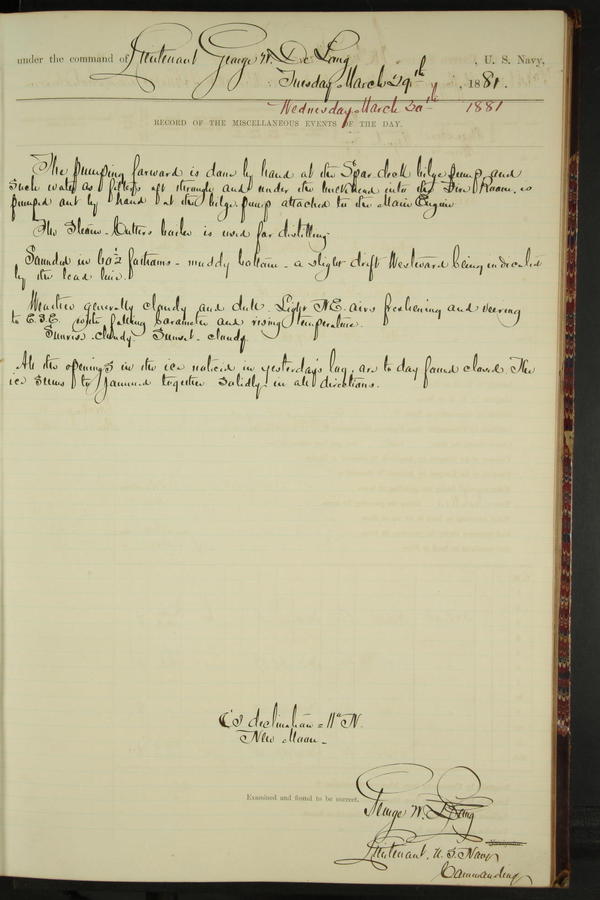 under the command of Lieutenant George W. De Long, U. S. Navy,
Tuesday March 29th, 1881.
Wednesday March 30th 1881
RECORD OF THE MISCELLANEOUS EVENTS OF THE DAY.
The pumping forward is done by hand at the Spar deck bilge pump, and
such water as filters aft through and under the bulkhead into the Fire Room, is
pumped out by hand at the bilge pump attached to the Main Engine
The Steam-Cutters boiler is used for distilling.
Sounded in 60½ fathoms - muddy bottom - a slight drift Westward being indicated
by the lead line.
Weather generally cloudy and dull. Light N.E. airs freshening and veering
to E.S.E. with falling barometer and rising temperature.
Sunrise. cloudy Sunset. cloudy
All the openings in the ice noticed in yesterday's log, are to day found closed. The
ice seems to jammed together solidly in all directions.
☾'s declination = 11° N.
New Moon.
Examined and found to be correct.
George W. De Long
Lieutenant, U. S. Navy
Commanding